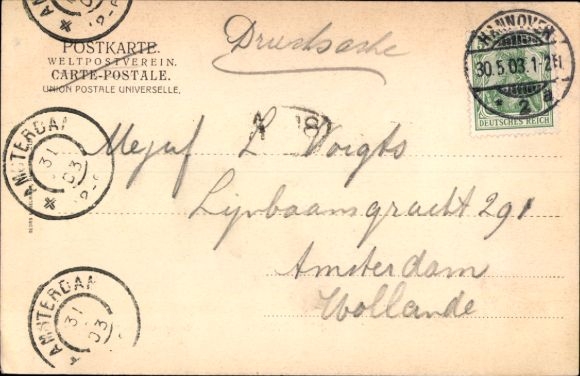 AM
POSTKARTE.
WELTPOSTVEREIN.
CARTE-POSTALE.
UNION POSTALE UNIVERSELLE.
Drucksache
HANNOVER
30.5.03.1-2N
* 2 a
DEUTSCHES REICH
AMSTERDAM
31
03
Mejuf L Voigts
Lijnbaansgracht 291
Amsterdam
Hollande
AMSTERDAM
31
03